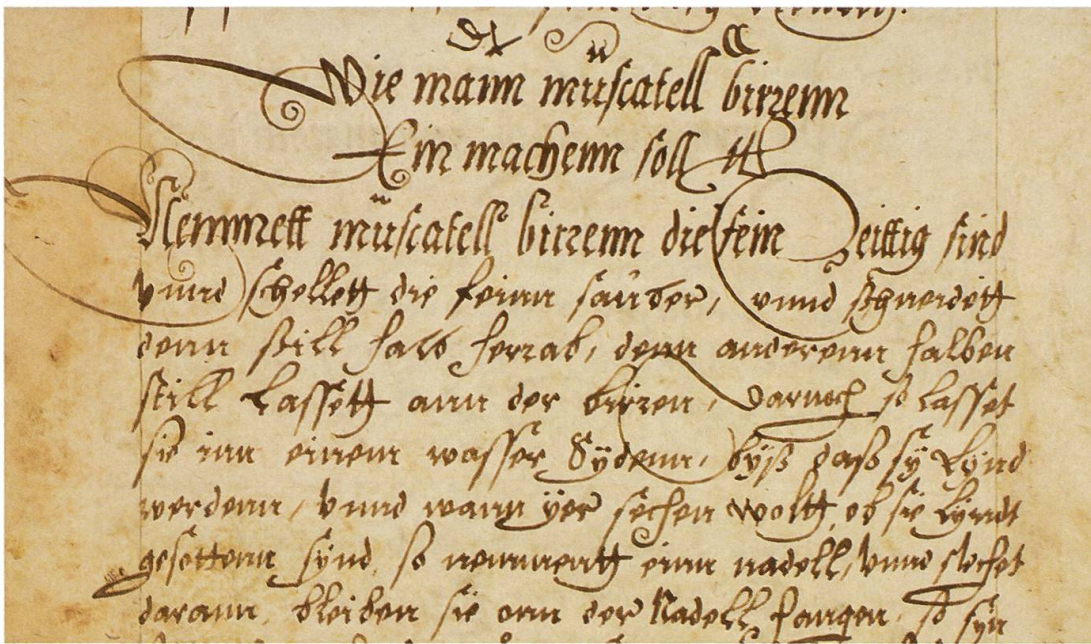 Wie mann müscatell birrenn
Ein machenn soll
Nemmett müscatell birrenn die fein Zeittig sind
vnnd schellett die feinn sauber, vnnd schneidett
denn still halb herrab, denn anderenn halben
still Lassett ann der birren, darnoch so lasset
sie inn einem wasser Sÿdenn, byß daß sÿ Lÿnd
werdenn, vnnd wann ÿer sechen woltt, ob sie Lÿndt
gesottenn sÿnd, so nemmentt einn nadell, vnnd stechet
darann, bleiben sie ann der Nadell hangen, so sÿn